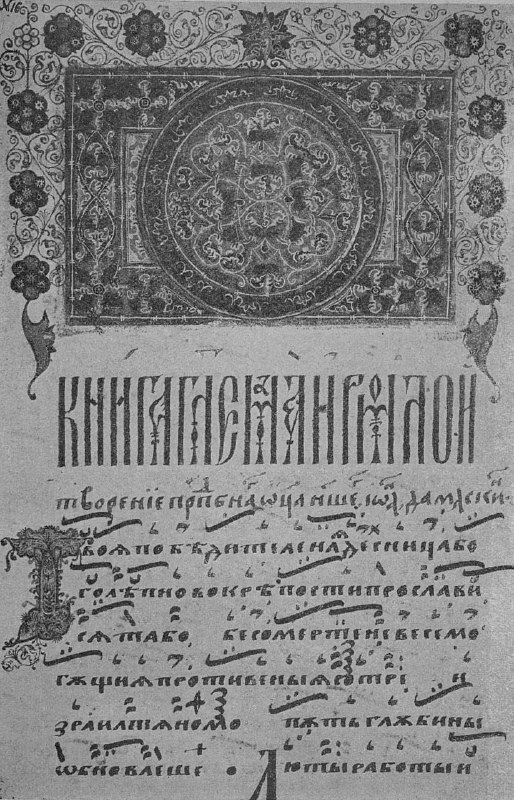 №16
КНИГА ГЛЕМАА ИРМОЛОЙ
творенїе прпⷣбна ѡца нше, іѡа, дамаскй
Твоѧ побѣдителенаѧ десница бо
голѣпно вокрѣпости прослави
сѧ та бо бесомертене весемо
гѫщиѧ противеныѧ сотрі и
зраилтѧномо пѫть глѫбины
ѡбновлеше • Лютыработыи